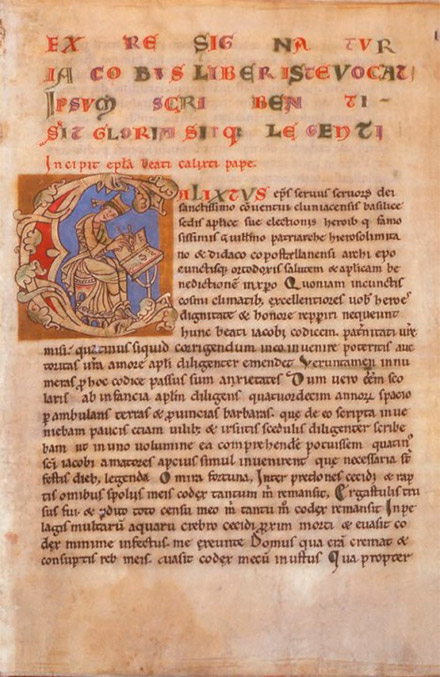 EX RE SIG NA TUR
IA CO BVS LIBER ISTE VOCAT
IPSVM SCRI BEN TI-
SIT GLORIA SITQ; LEGENTI
Incipit epła beati calixti pape.
CALIXTVS eps seruus seruorꝫ dei
sanctissimo conuentui cluniacensis basilice
sedis aplice sue electionis heroibꝫ q; famo
sissimis Guillmo patriarche hierosolimita
no & didaco copostellanensi archi epo
cunctisq; ortodoxis salutem & aplicam be
nedictionē inxpo. Quoniam incunctis
cosmi climatibꝫ, excellentiores uob heroes
dignitate & honore repꝑiri nequeunt
hunc beati iacobi codicem, pat̄nitati ur̄e
misi; quatinus siquid corrigendum ineo inuenire poteritis auc
toritas ur̄a amore apli diligenter emendet. Veruntamen innu
meras ꝓ hoc codice passus sum anxietates. Dum uero eēm sco
laris ab infancia aplm diligens quatuordecim annorꝫ spacio
ꝑambulans terras & ꝓuincias barbaras, que de eo scripta inue
niebam paucis ceciam uilibꝫ & ursutis scedulis diligenter scribe
bam ut in uno uolumine ea comprehendē potuissem quatinꝰ
sc̄i iacobi amatores apcius simul inuenirent que necessaria s̄t
festis diebꝫ, legenda. O mira fortuna, Inter predones cecidi & rap
tis omnibus spolijs meis codex tantum m̄ remansit, Ergastulis tru
sus fui & ꝑdito toto censu meo m̄ tantū m̄ codex remansit In pe
lagis multarū aquarū crebro cecidi ꝓxim morti & euasit co
dex minime infectus me exeunte Domus qua erā cremat̄ &
consuptis rebꝫ meis, euasit codex mecū inustus Qua propter